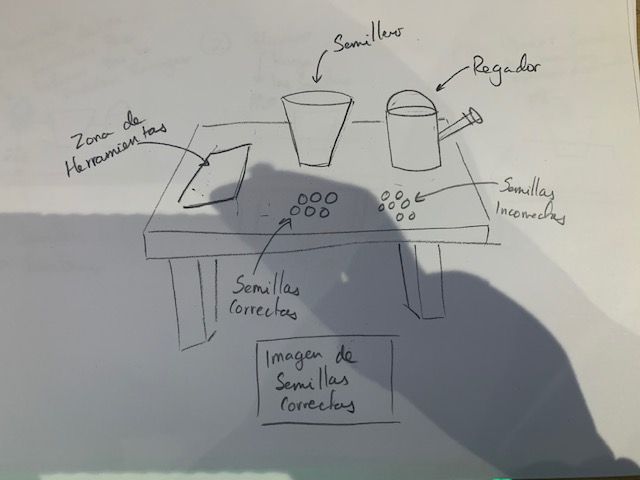 Semillero
Regador
Zona de
Herramientas
Semillas
Incorrectas
Semillas
Correctas
Imagen de
Semillas
Correctas